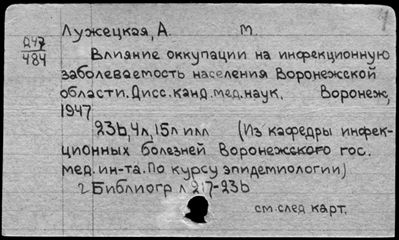 Лужецкая, А. М.
Д47
484
Влияние оккупации на инфекционную
заболеваемость населения Воронежской
области. Дисс. канд. мед. наук. Воронеж,
1947
236, 4л, 15л илл (Из кафедры инфек-
ционных болезней Воронежского гос.
мед. ин-та. По курсу эпидемиологии)
Библиогр л 217-236
см. след карт.